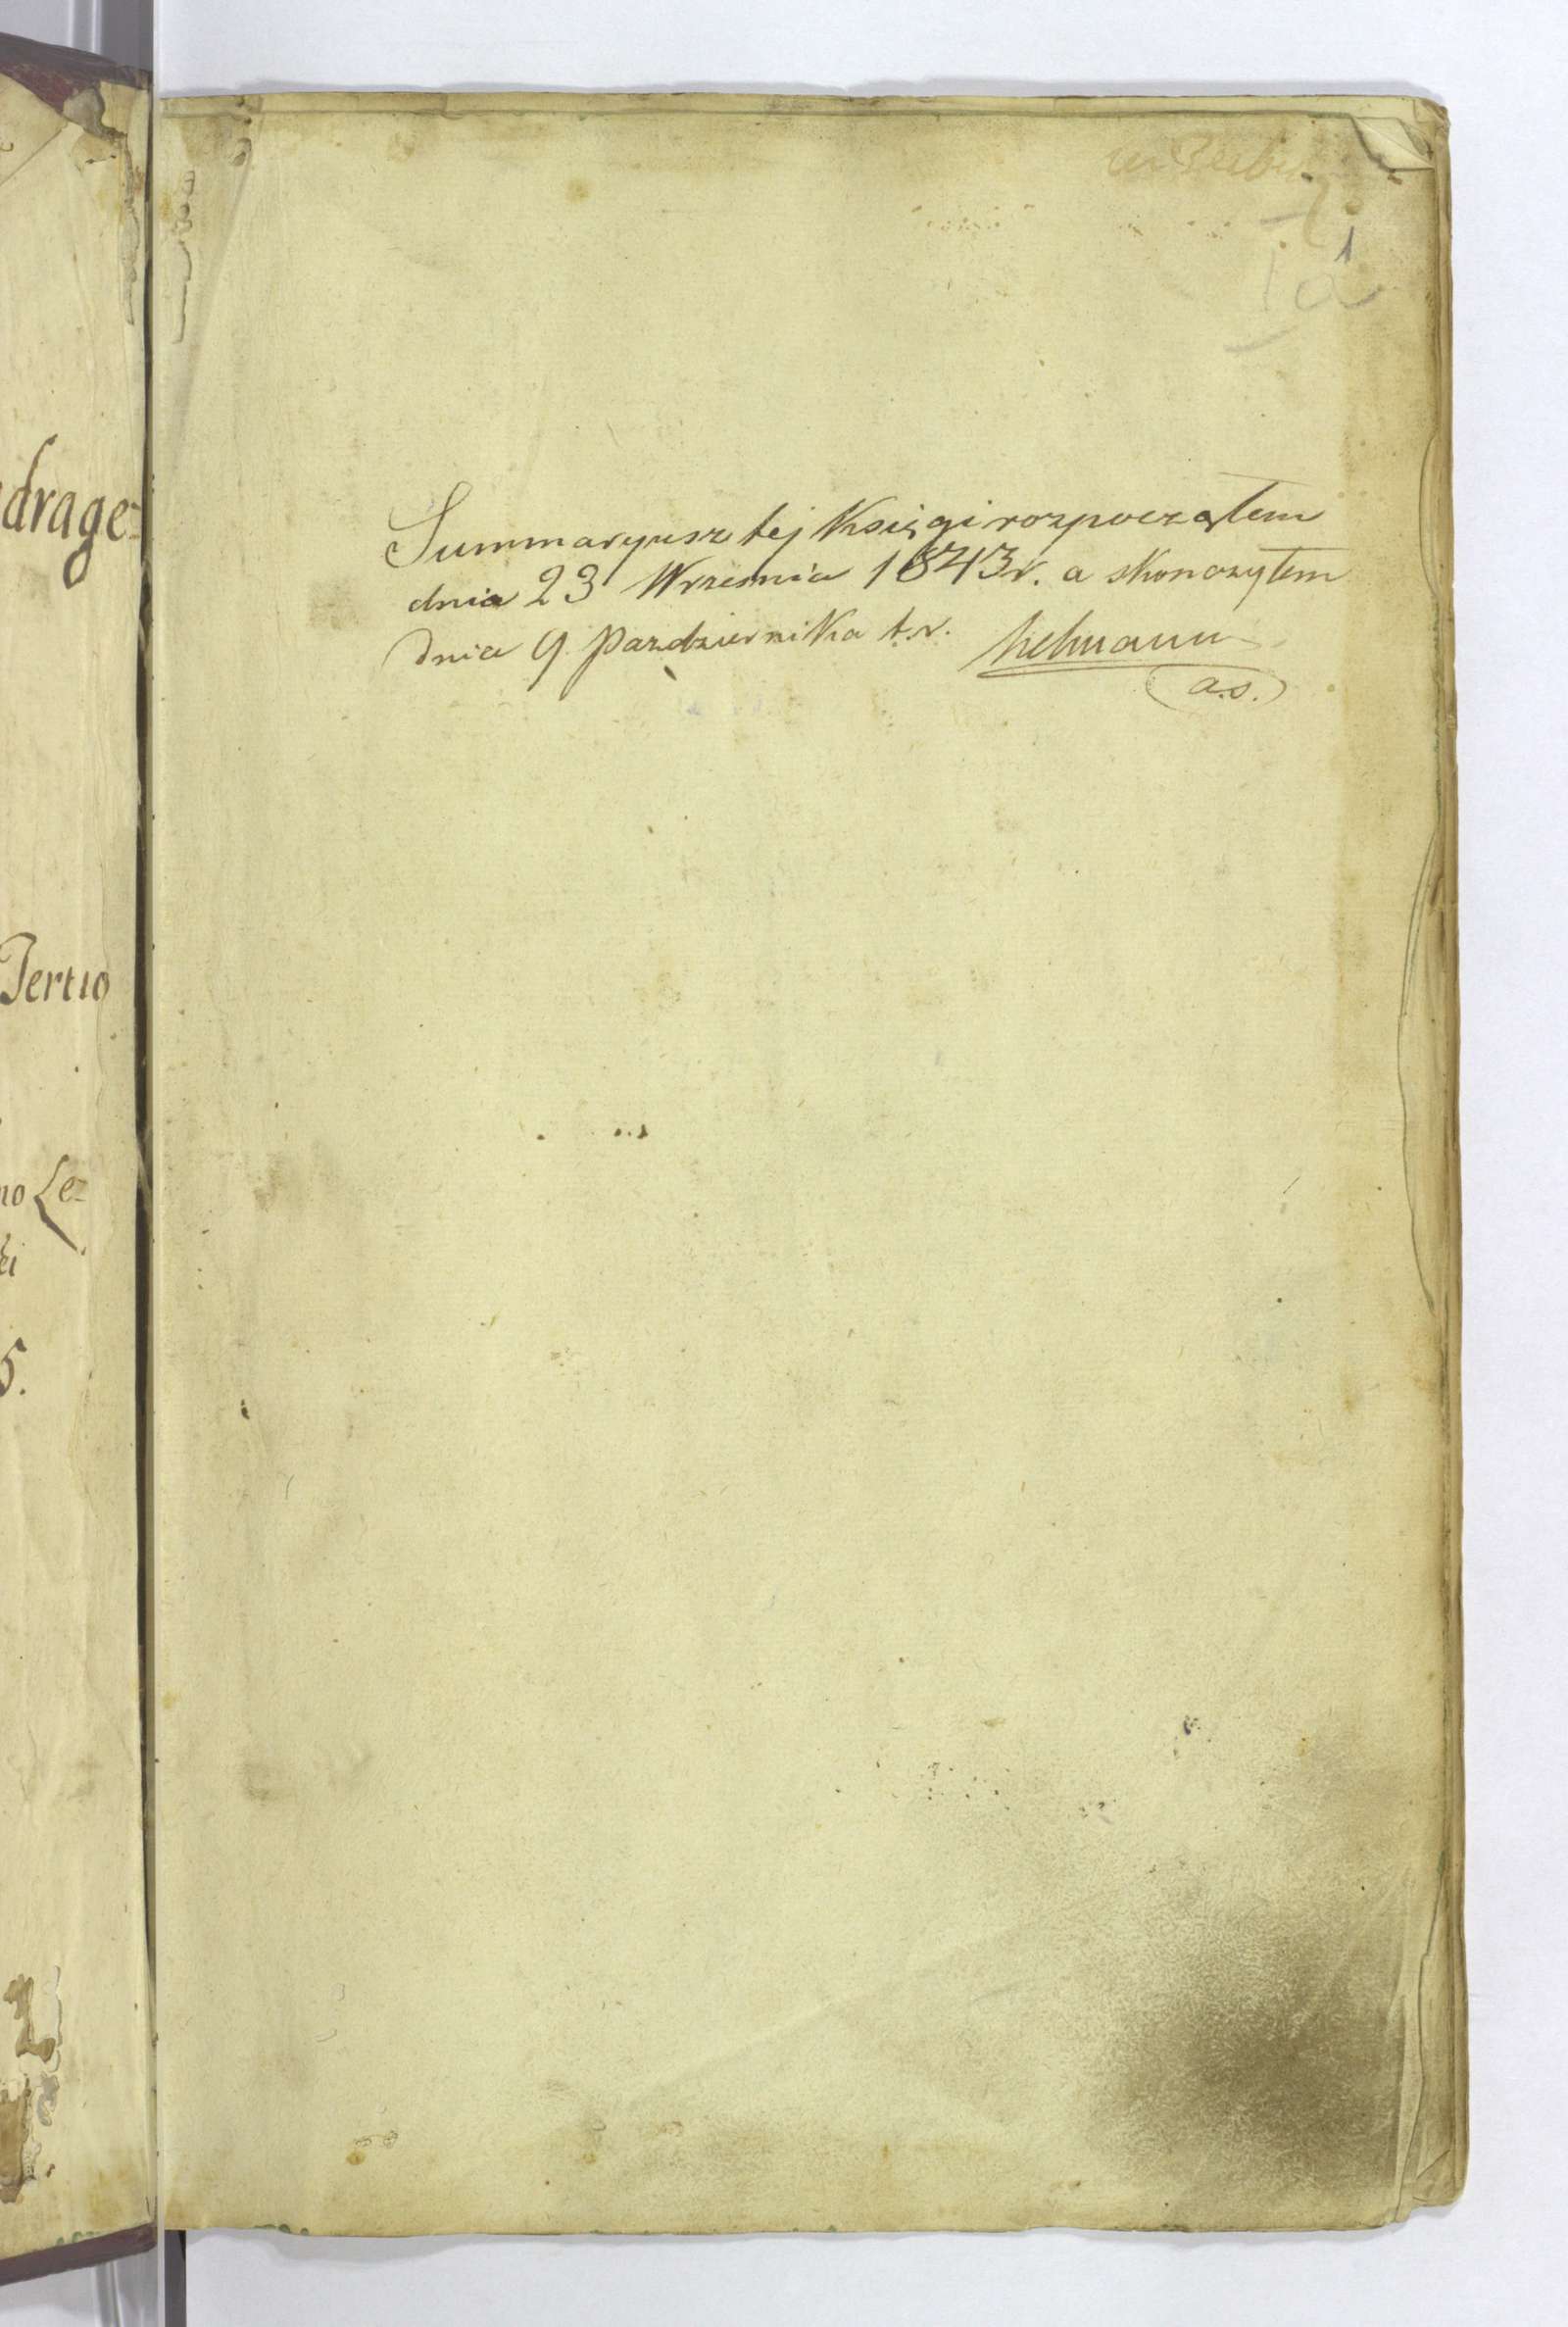 drage=
Tertio
no Le-
5.
1a
Summaryusz tej Księgi rozpocząłem
dnia 23 Wrzesnia 1843 r. a skonczyłem
dnia 9 Pazdziernika t.r.
a.s.